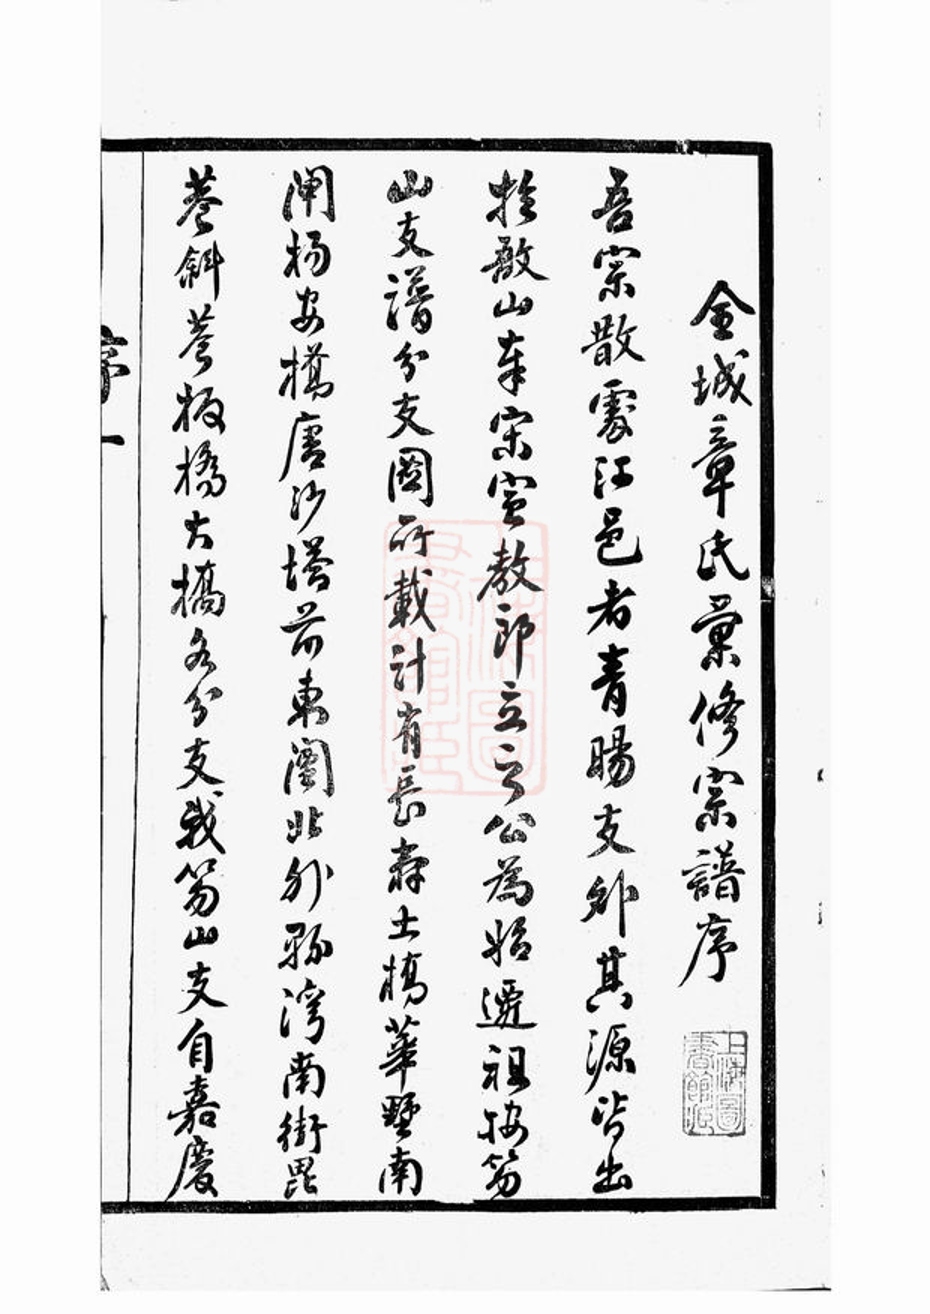 金城章氏彙修宗譜序
吾宗散處江邑者青暘支外其源皆出
於敔山奉宋宣教郎立之公為始遷祖按芴
山支譜分支圖所載計有長壽土橋華墅南
閘楊安橋唐沙塔前東闉北外縣灣南街毘
巷斜巷板橋大橋各分支我芴山支自嘉慶
序
一
上海圖書館藏